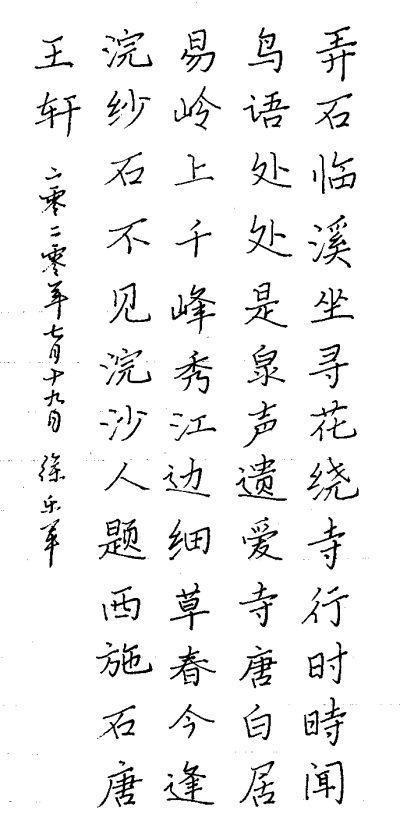 弄石临溪坐寻花绕寺行时時闻
鸟语处处是泉声遗爱寺唐白居
易岭上千峰秀江边细草春今逢
浣纱石不见浣沙人题西施石唐
王轩 二零二零年七月十九日 徐乐军